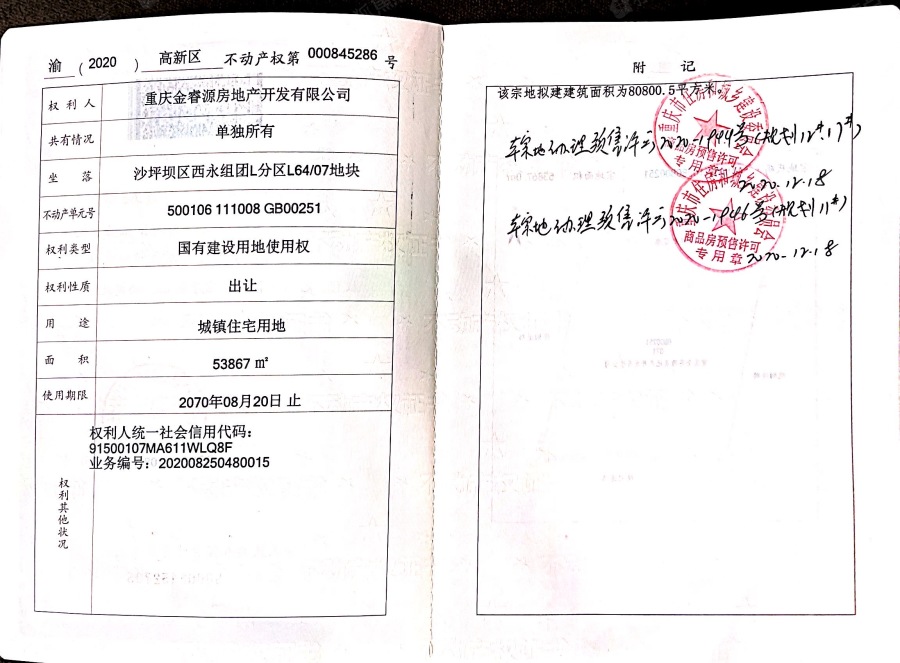 渝（2020）高新区不动产权第000845286号
权利人 重庆金睿源房地产开发有限公司
共有情况 单独所有
坐落 沙坪坝区西永组团L分区L64/07地块
不动产单元号 500106 111008 GB00251
权利类型 国有建设用地使用权
权利性质 出让
用途 城镇住宅用地
面积 53867 ㎡
使用期限 2070年08月20日 止
权利其他状况
权利人统一社会信用代码：
91500107MA611WLQ8F
业务编号：202008250480015
附记
该宗地拟建建筑面积为80800.5平方米。
本宗地办理预售许字2020-1944号(规划12#、17#)
2020.12.18
本宗地办理预售许字2020-1946号(规划11#)
2020.12.18
重庆市住房和城乡建设委员会
商品房预售许可
专用章
重庆市住房和城乡建设委员会
商品房预售许可
专用章